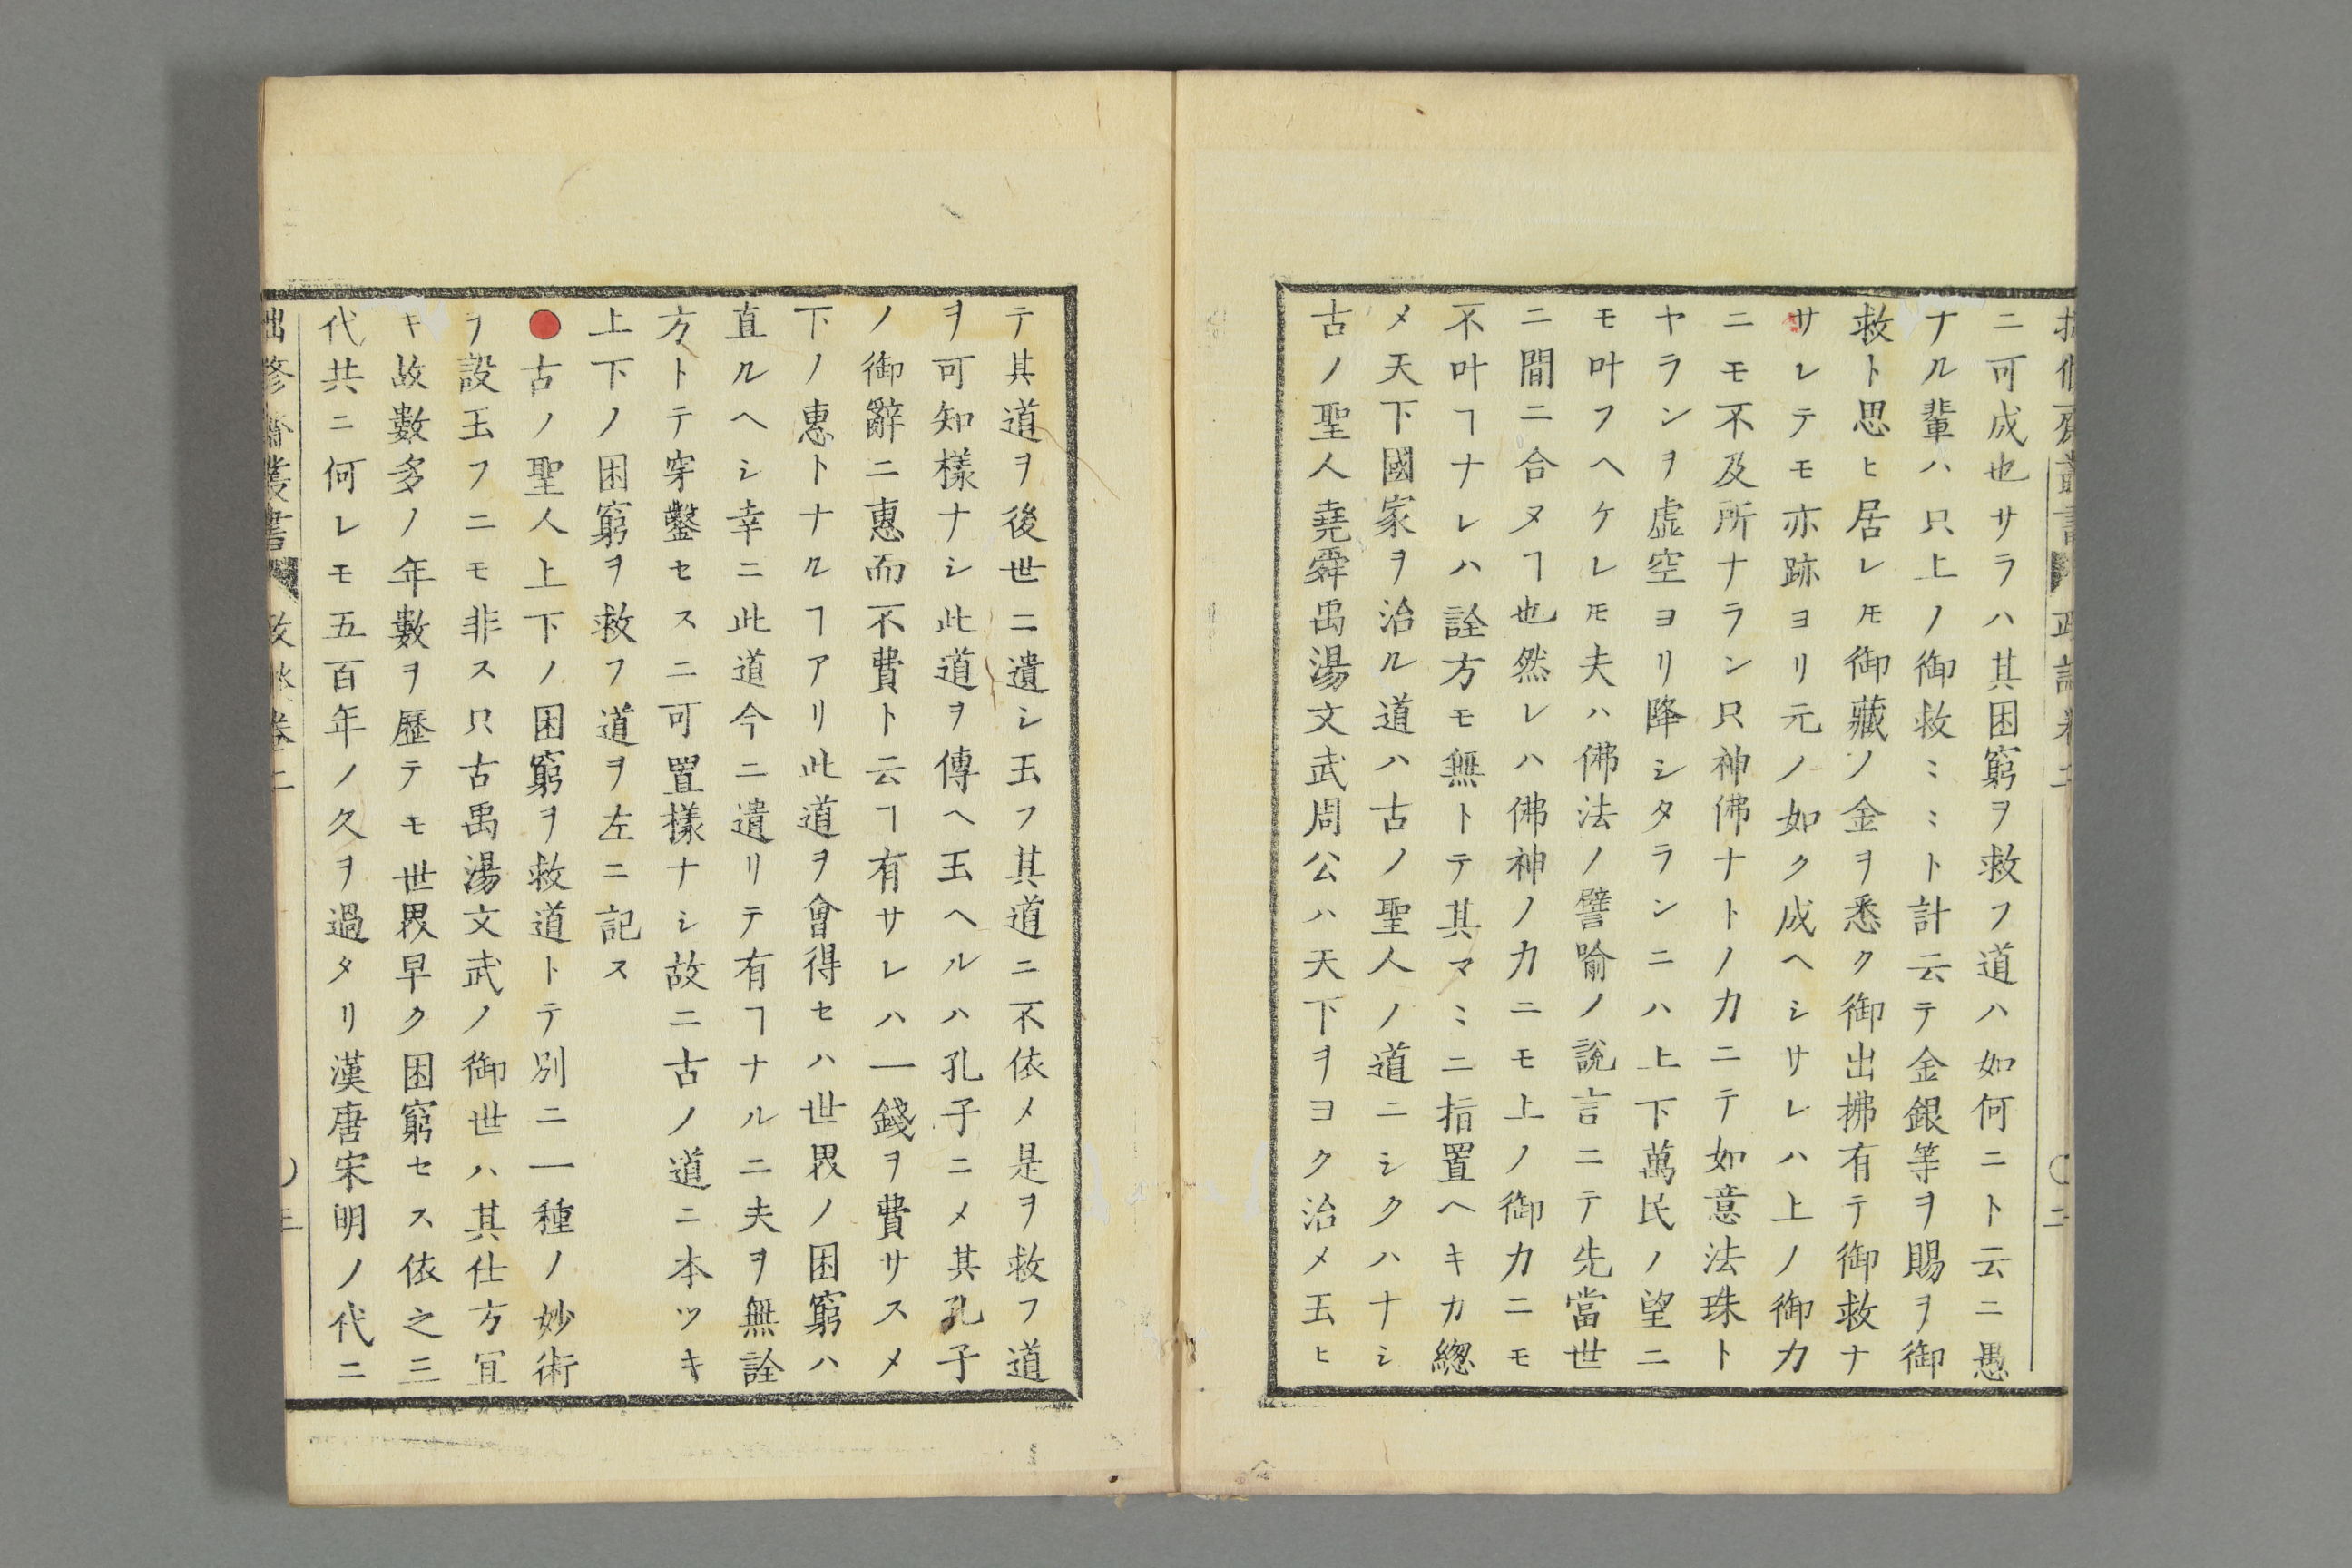 ニ可成也サラハ其困窮ヲ救フ道ハ如何ニト云ニ愚
ナル輩ハ只上ノ御救ミミト計云テ金銀等ヲ賜ヲ御
救ト思ヒ居レ𪜈御藏ノ金ヲ悉ク御出拂有テ御救ナ
サレテモ亦跡ヨリ元ノ如ク成ヘシサレハ上ノ御力
ニモ不及所ナラン只神佛ナトノ力ニテ如意法珠ト
ヤランヲ虚空ヨリ降シタランニハ上下萬民ノ望ニ
モ叶フヘケレ𪜈夫ハ佛法ノ譬喩ノ說言ニテ先當世
ニ間ニ合ヌヿ也然レハ佛神ノ力ニモ上ノ御力ニモ
不叶ヿナレハ詮方モ無トテ其マミニ指置ヘキカ總
メ天下國家ヲ治ル道ハ古ノ聖人ノ道ニシクハナシ
古ノ聖人堯舜禹湯文武周公ハ天下ヲヨク治メ玉ヒ
テ其道ヲ後世ニ遺シ玉フ其道ニ不依メ是ヲ救フ道
ヲ可知樣ナシ此道ヲ傳ヘ玉ヘルハ孔子ニメ其孔子
ノ御辭ニ惠而不費ト云ヿ有サレハ一錢ヲ費サスメ
下ノ惠トナルヿアリ此道ヲ會得セハ世界ノ困窮ハ
直ルヘシ幸ニ此道今ニ遺リテ有ヿナルニ夫ヲ無詮
方トテ穿鑿セスニ可置樣ナシ故ニ古ノ道ニ本ツキ
上下ノ困窮ヲ救フ道ヲ左ニ記ス
●古ノ聖人上下ノ困窮ヲ救道トテ別ニ一種ノ妙術
ヲ設玉フニモ非ス只古禹湯文武ノ御世ハ其仕方冝
キ故數多ノ年數ヲ歷テモ世界早ク困窮セス依之三
代共ニ何レモ五百年ノ久ヲ過タリ漢唐宋明ノ代ニ